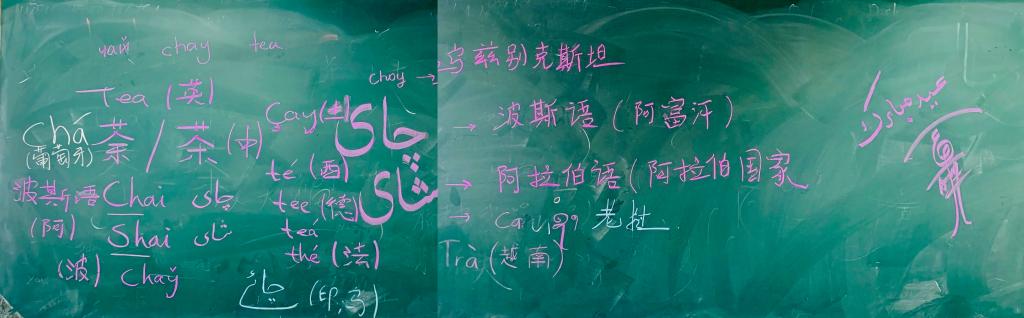 чай chay tea
Tea (英)
Chá
(葡萄牙)
茶 / 茶 (中)
波斯语 Chai چای
(阿) Shai شای
(波) Chay
Çay (土)
té (西)
tee (德)
teá
thé (法)
چائے (印,乌)
choy → 乌兹别克斯坦
چای → 波斯语 (阿富汗)
شای → 阿拉伯语 (阿拉伯国家
→ 老挝
Trà (越南)
عید مبارک